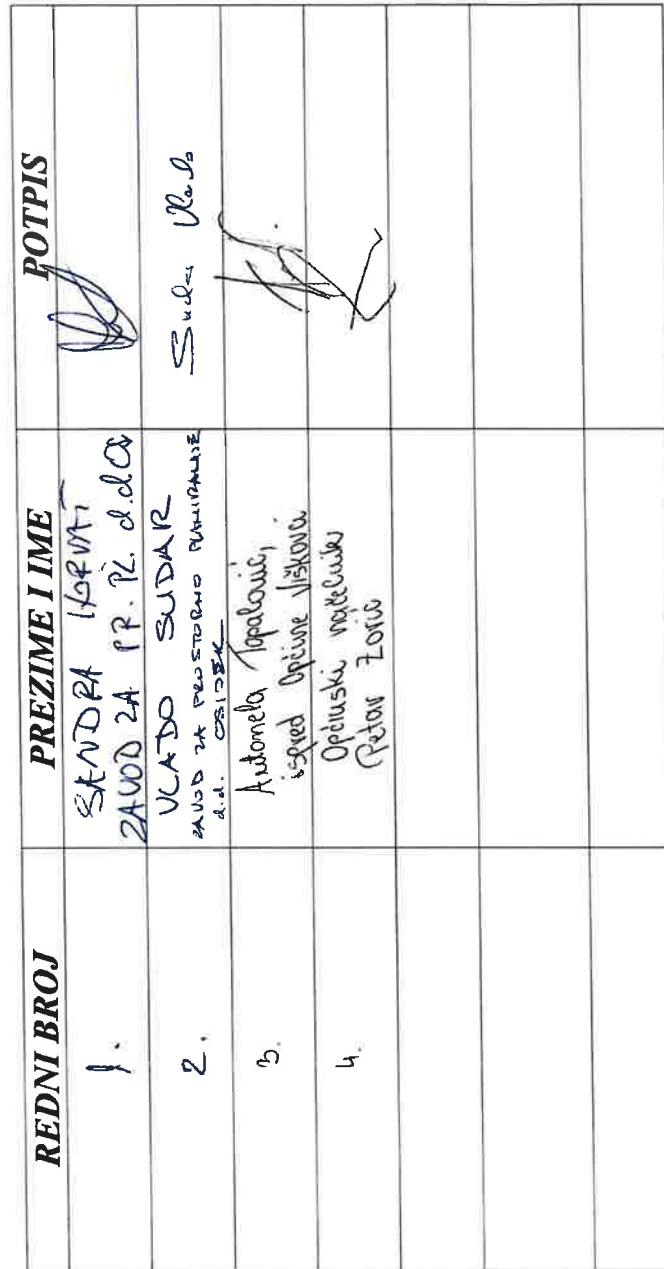 REDNI BROJ PREZIME I IME POTPIS
1. SANDRA HORVAT
ZAVOD ZA PR. PL. d.d. OS
2. VLADO SUDAR Sudar Vlado
ZAVOD ZA PROSTORNO PLANIRANJE
d.d. OSIJEK
3. Antonela Topalović,
ispred Općine Viškovci
4. Općinski načelnik
Petar Zorić